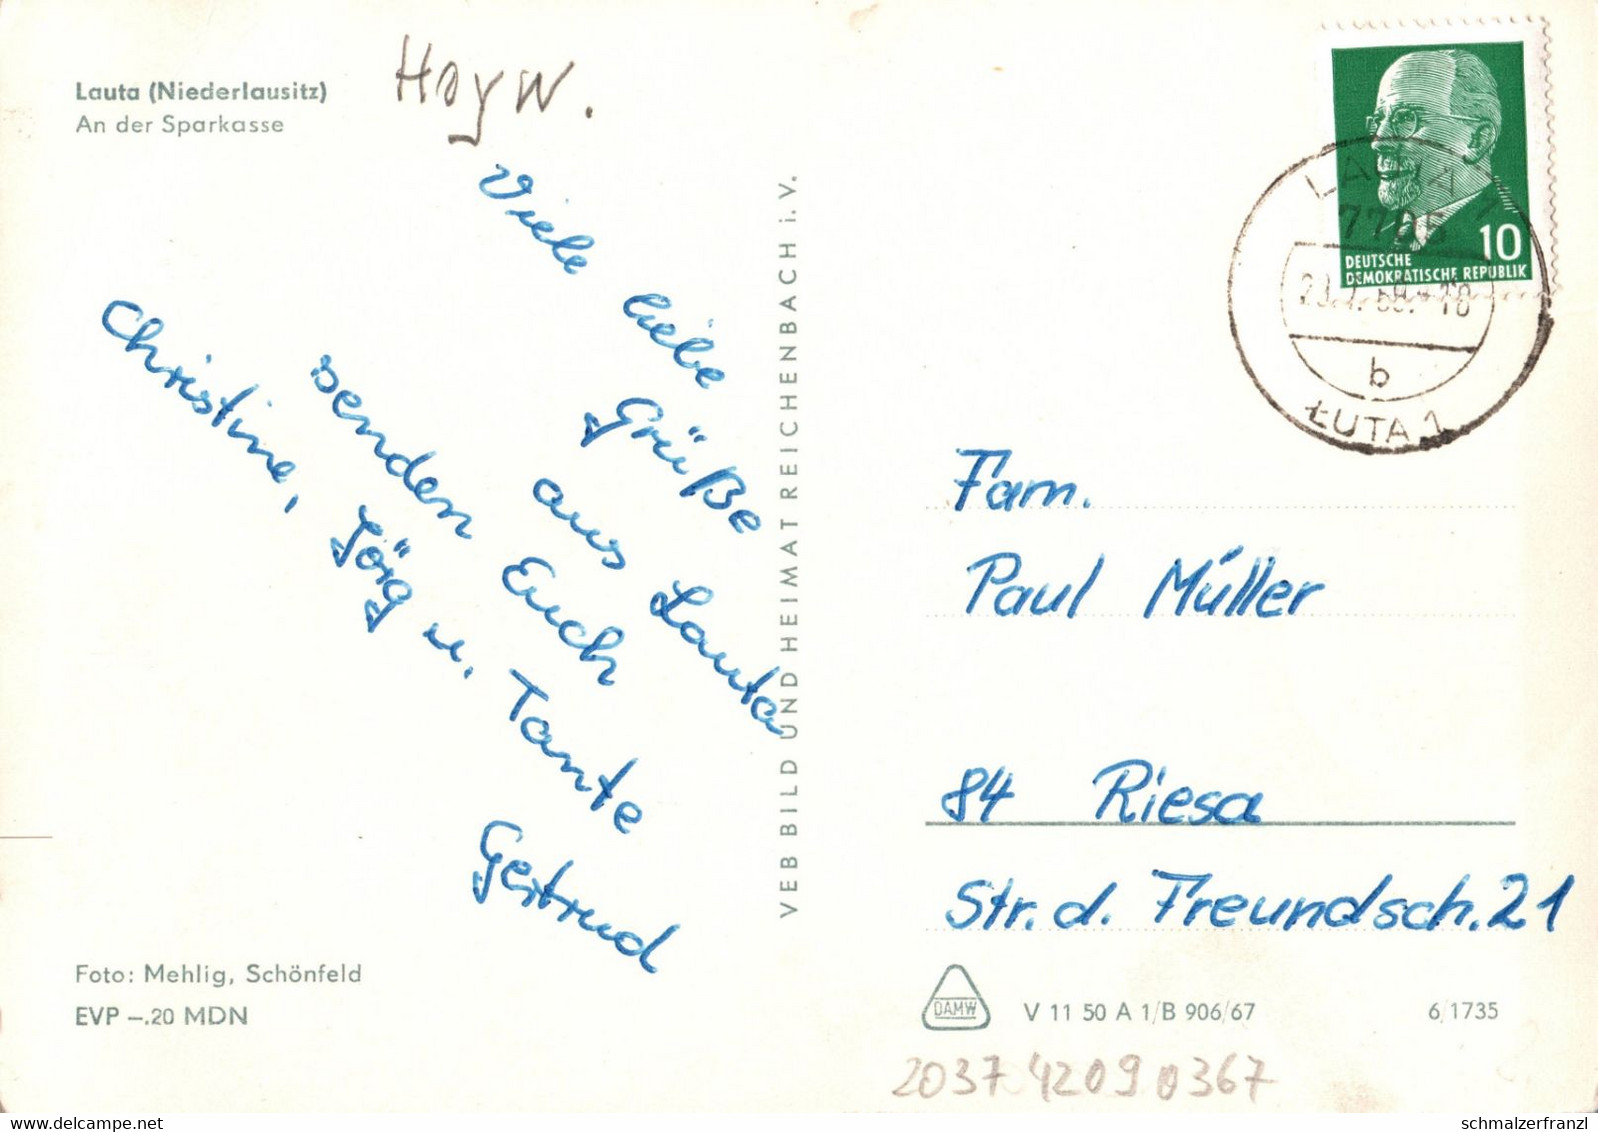 Lauta (Niederlausitz)
An der Sparkasse
Hoyw.
Viele liebe Grüße
aus Lauta
senden Euch
Christine, Jörg u. Tante
Gertrud
Foto: Mehlig, Schönfeld
EVP –.20 MDN
VEB BILD UND HEIMAT REICHENBACH i. V.
10
DEUTSCHE
DEMOKRATISCHE REPUBLIK
LAUTA 1
7705
b
ŁUTA 1
Fam.
Paul Müller
84 Riesa
Str. d. Freundsch. 21
DAMW
V 11 50 A 1/B 906/67
6/1735
2037 4209 0367
schmalzerfranzl